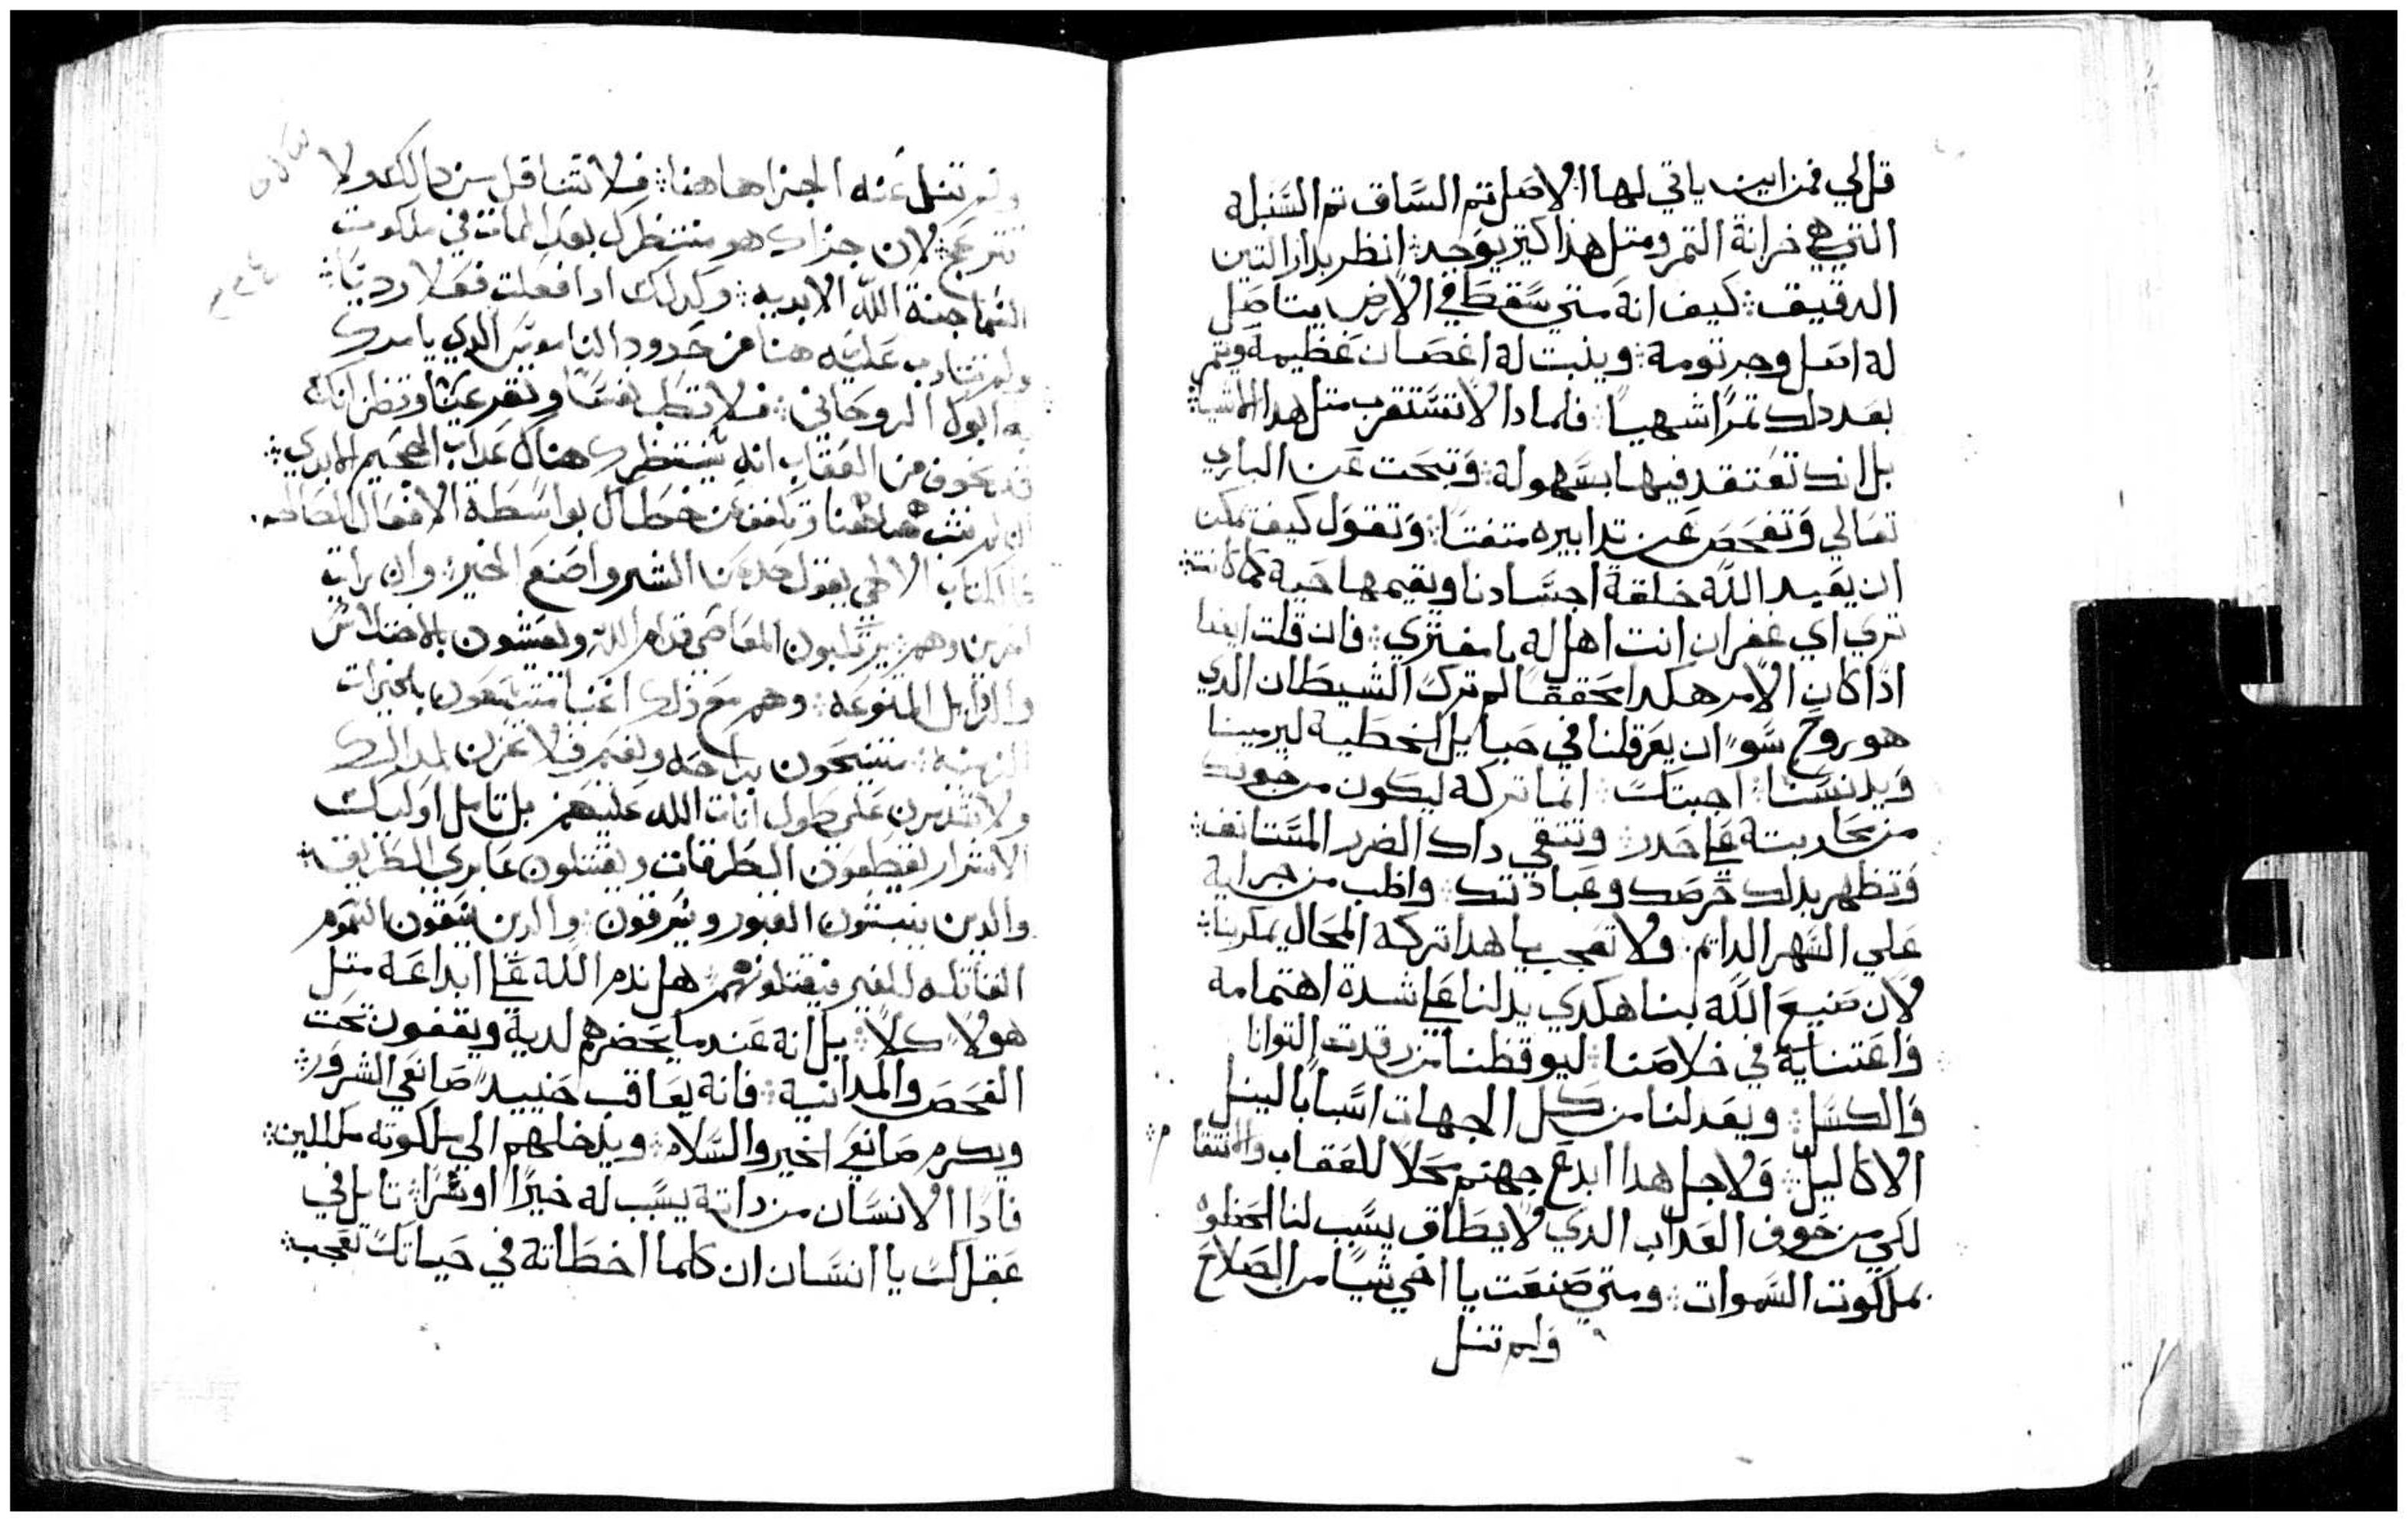 قل لي فمن اين ياتي لها الاصل تم الساق تم السنبلة
التي هي خزانة التمر ومتل هذا كتير يوجد انظر بدار التين
الدقيق كيف انه متي سقط في الارض يتاصل
له اصل وجرتومة وينبت له اغصان عظيمة ويتمر
بعد دلك تمرًا شهيا فلمادا لا تستغرب متل هدا الاشيا
بل انك تعتقد فيها بسهولة وتبحت عن الباري
تعالي وتفحص عن تدابيره متفتنا وتقول كيف يمكن
ان يعيد الله خلقة اجسادنا ويقيمها حية كما كانت
تري اي غفران انت اهل له يا مفتري فان قلت ايضا
ادا كان الامر هكدا محققا لم ترك الشيطان الدي
هو روح سوء ان يعرقلنا في حبايل الخطية ليرمينا
ويدنسنا اجبتك انما تركه ليكون من خوفك
من محاربته علي حدر وتتقي داك الضرر المستانف
وتظهر بدلك حرصك وعبادتك واظب من جرايه
علي السهر الدايم ولا تعجب يا هدا تركه المحال يمكر بنا
لان صنيع الله بنا هكدي يدلنا علي شدة اهتمامه
واعتنايه في خلاصنا ليوقظنا من رقدت التوانا
والكسل ويعد لنا من كل الجهات اسبابا لينل
الاكاليل ولاجل هدا ابدع جهنم محلا للعقاب والانتقا م
لكي من خوف العداب الدي لا يطاق يسبب لنا الحظوه
بملكوت السموات ومتي صنعت يا اخي شيا من الصلاح
ولم تنل
ولم تنل عنه الجزا هاهنا فلا تتناقل من دالك ولا
تنزعج لان جزاك هو منتظرك بعد الممات في ملكوت
السما جنة الله الابديه وكدلك ادا فعلت فعلا رديا
ولم تتادب عليه هنا من حدود الناموس الدي يامرك
به ابوك الروحاني فلا تطب نفسا وتقر عينا وتظن انك
قد نجوت من العقاب انه ينتظرك هناك عداب الجحيم الابدي
ان لم تتب هاهنا وتكفف عن خطاك بواسطة الافعال الصالحه
فالكتاب الالهي يقول حد عن الشر واصنع الخير وان رايت
اخرين وهم يرتكبون المعاصي قدام الله ويعيشون بالاختلاس
والردايل المتنوعه وهم مع ذلك اغنيا متمتعون بالخيرات
الزمنيه متنيحون براحه ونعيم فلا تحزن لدلك
ولا تتدمرن علي طول انات الله عليهم بل تامل اوليك
الاشرار يقطعون الطرقات ويقتلون عابري الطريق
والدين ينبشون القبور ويسرقون والدين يسقون السموم
القاتله للغير فيقتلونهم هل ندم الله علي ابداعه متل
هولاء كلا بل انه عندما يحضرهم لديه ويقفون تحت
الفحص والمداينة فانه يعاقب حنييد صانعي الشرور
ويكرم صانعي الخير والسلاه ويدخلهم الي ملكوته مكللين
فادا الانسان من داته يسبب له خيرًا او شرًا تامل في
عقلك يا انسان ان كلما اخطاته في حياتك تعجب